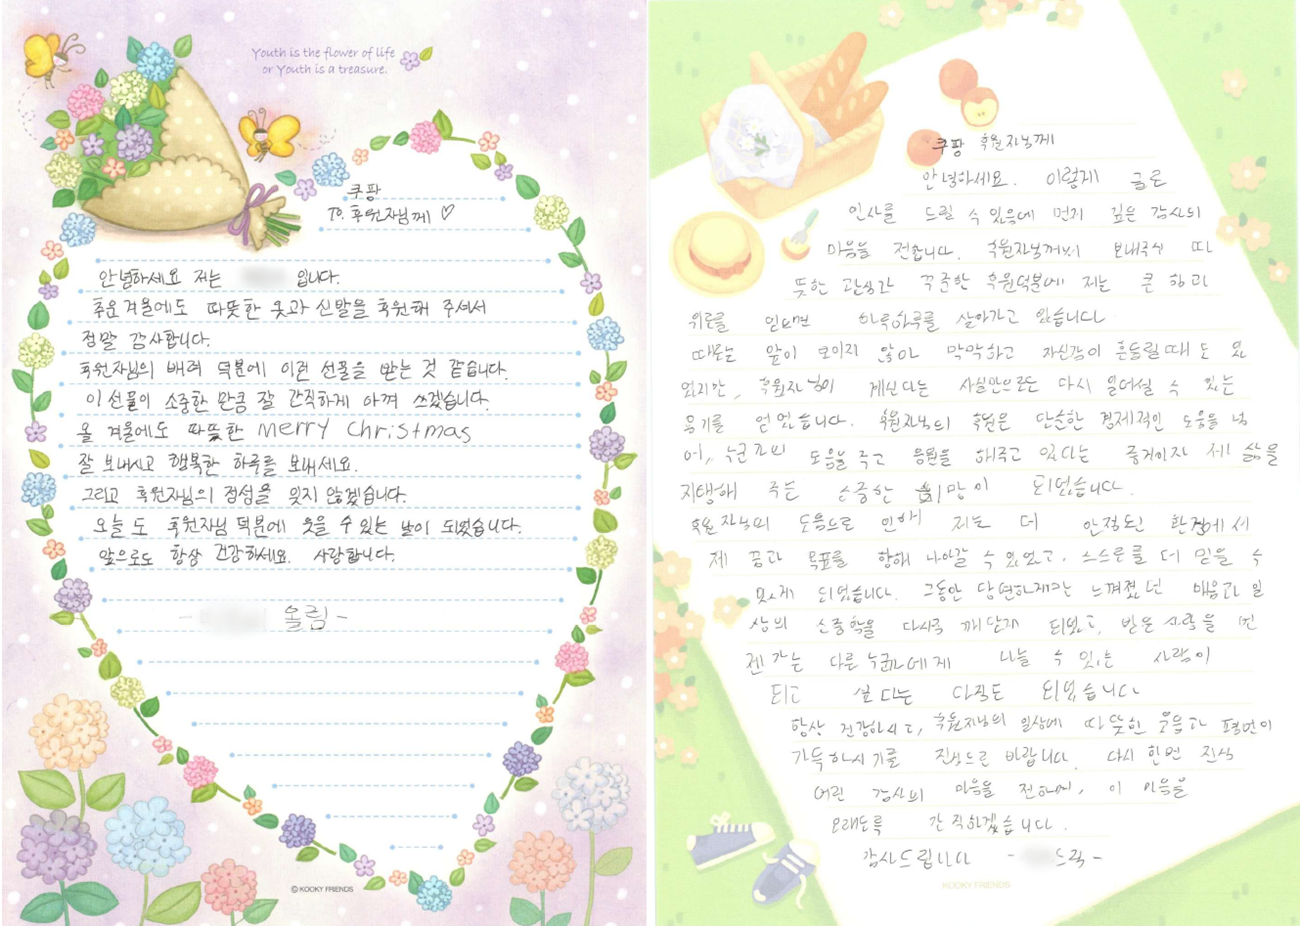 Youth is the flower of life
or Youth is a treasure.
쿠팡
To. 후원자님께 ♡
안녕하세요 저는 입니다.
추운겨울에도 따뜻한 옷과 신발을 후원해 주셔서
정말 감사합니다.
후원자님의 배려 덕분에 이런 선물을 받는 것 같습니다.
이 선물이 소중한 만큼 잘 간직하게 아껴 쓰겠습니다.
올 겨울에도 따뜻한 Merry Christmas
잘 보내시고 행복한 하루를 보내세요.
그리고 후원자님의 정성을 잊지 않겠습니다.
오늘도 후원자님 덕분에 웃을 수 있는 날이 되었습니다.
앞으로도 항상 건강하세요. 사랑합니다.
- 올림 -
© KOOKY FRIENDS
쿠팡 후원자님께
안녕하세요. 이렇게 글로
인사를 드릴 수 있음에 먼저 깊은 감사의
마음을 전합니다. 후원자님께서 보내주신 따
뜻한 관심과 꾸준한 후원덕분에 저는 큰 힘과
위로를 얻으며 하루하루를 살아가고 있습니다
때로는 앞이 보이지 않아 막막하고 자신감이 흔들릴때도 있
었지만, 후원자님이 계신다는 사실만으로도 다시 일어설 수 있는
용기를 얻었습니다. 후원자님의 후원은 단순한 경제적인 도움을 넘
어, 누군가의 도움을 주고 응원을 해주고 있다는 증거이자 제 삶을
지탱해 주는 소중한 희망이 되었습니다.
후원자님의 도움으로 인해 저는 더 안정된 환경에서
제 꿈과 목표를 향해 나아갈 수 있었고, 스스로를 더 믿을 수
있게 되었습니다. 그동안 당연하게만 느껴졌던 배움과 일
상의 소중함을 다시금 깨닫게 되었고, 받은 사랑을 언
젠가는 다른 누군가에게 나눌 수 있는 사람이
되고 싶다는 다짐도 되었습니다
항상 건강하시고, 후원자님의 일상에 따뜻한 웃음과 평안이
가득하시기를 진심으로 바랍니다. 다시 한번 진심
어린 감사의 마음을 전하며, 이 마음을
오래도록 간직하겠습니다.
감사드립니다 - 드림 -
KOOKY FRIENDS